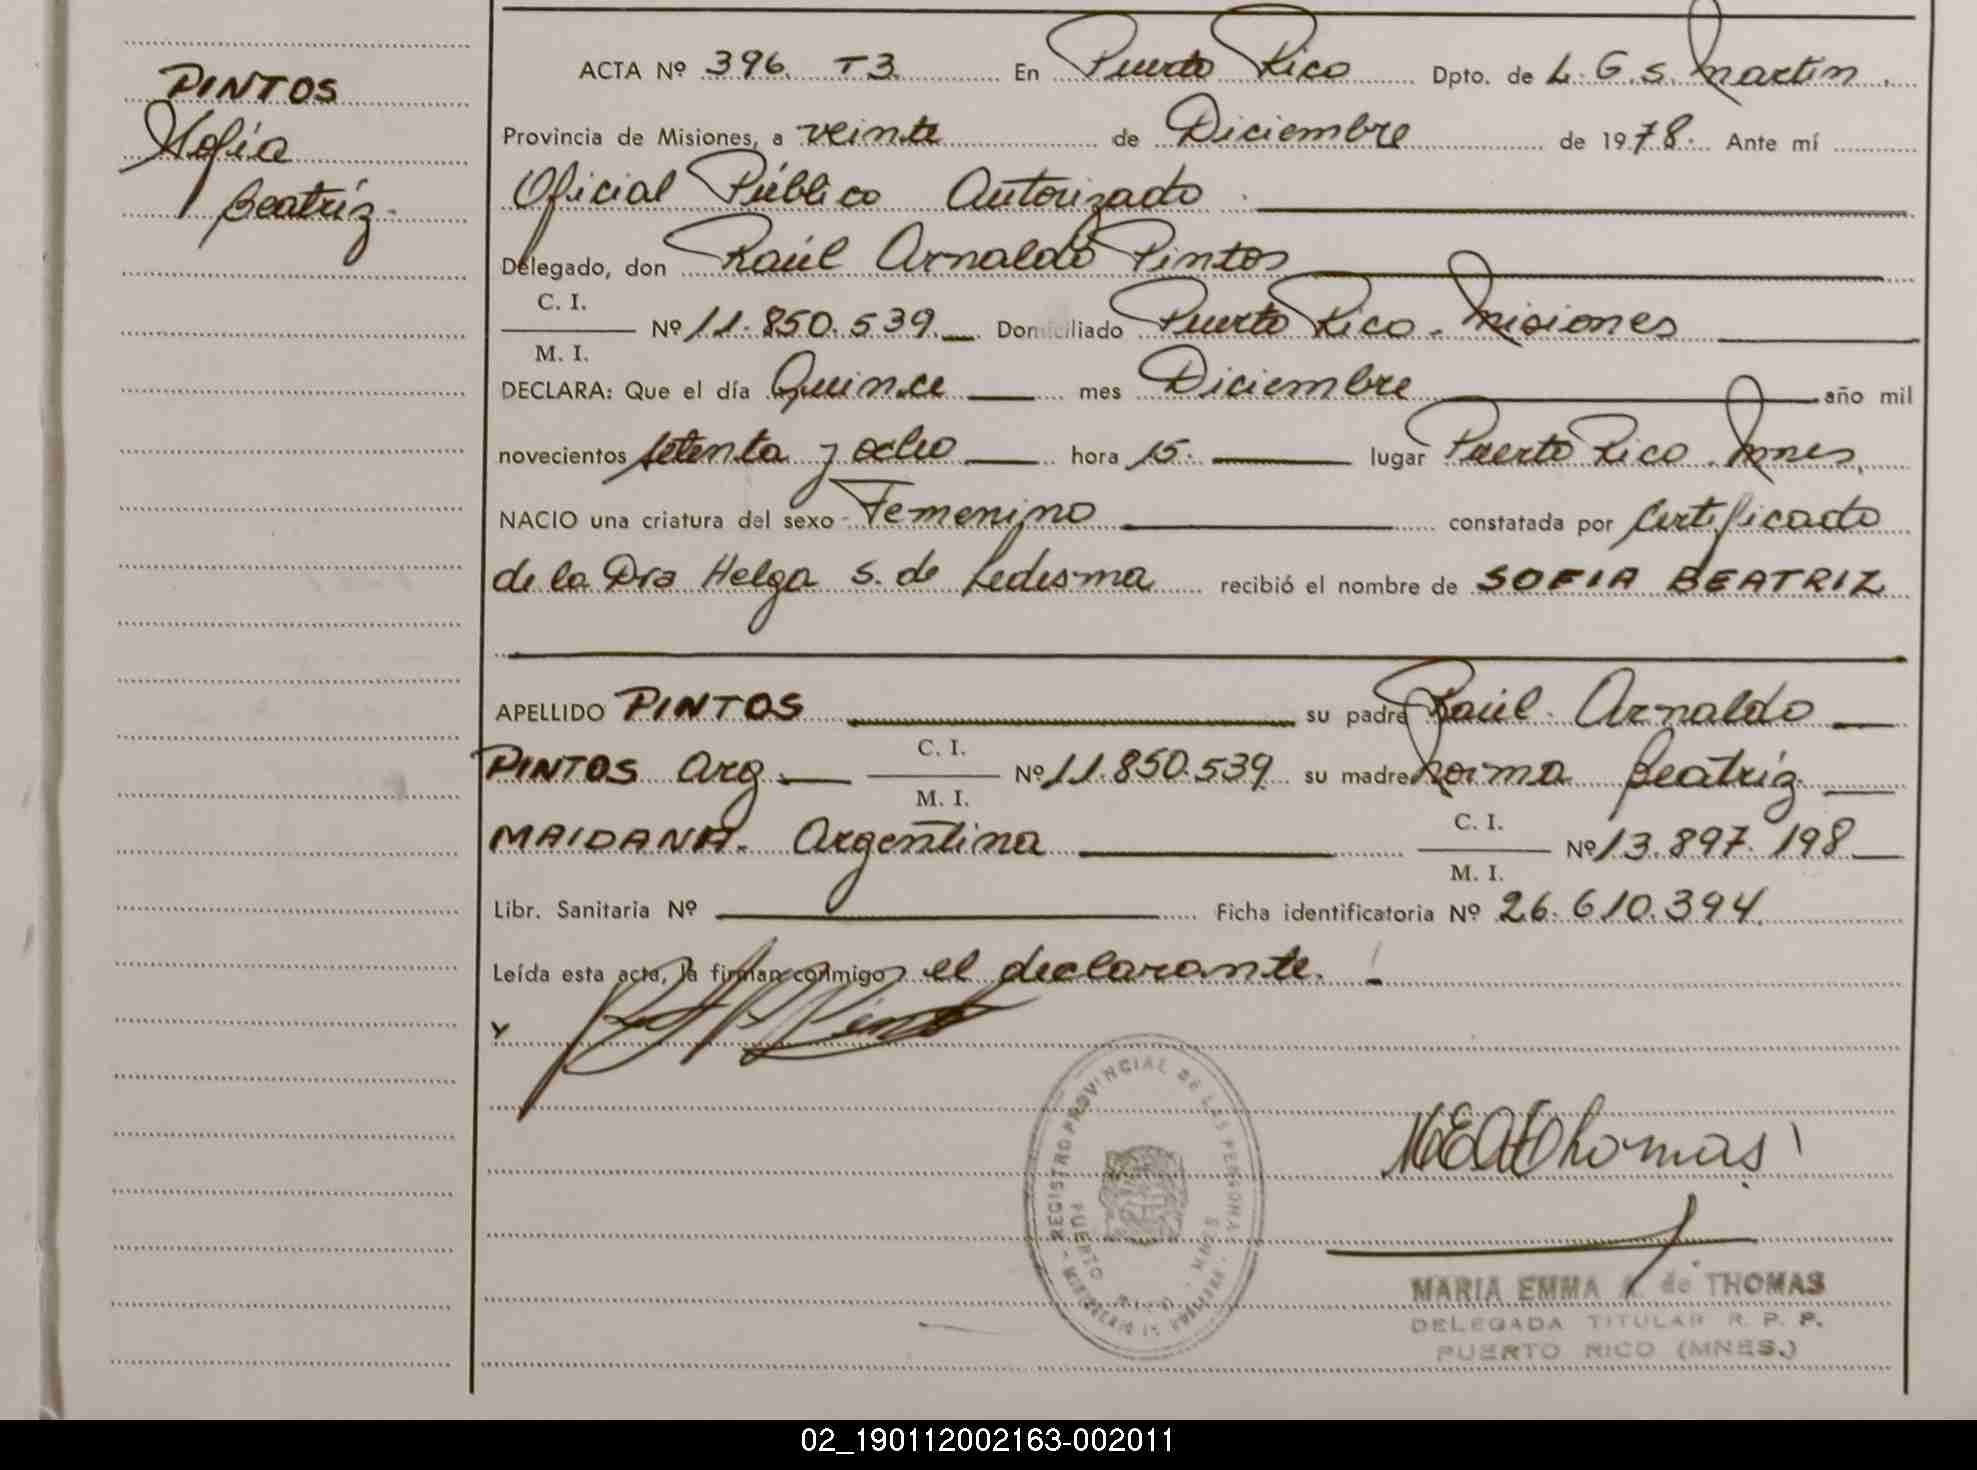 PINTOS
Sofía
Beatriz.
ACTA Nº 396. T3 En Puerto Rico Dpto. de L. G. S. Martín.
Provincia de Misiones, a veinte de Diciembre de 1978. Ante mí
Oficial Público Autorizado
Delegado, don Raúl Arnaldo Pintos
C. I.
Nº 11.850.539. Domiciliado Puerto Rico - Misiones
M. I.
DECLARA: Que el día Quince mes Diciembre año mil
novecientos setenta y ocho hora 15. lugar Puerto Rico. Mnes,
NACIO una criatura del sexo Femenino constatada por Certificado
de la Dra Helga S. de Ledesma recibió el nombre de SOFIA BEATRIZ
APELLIDO PINTOS su padre Raúl Arnaldo
PINTOS Arg. C. I. Nº 11.850.539 su madre Norma Beatriz
M. I.
MAIDANA. Argentina C. I. Nº 13.897.198
M. I.
Libr. Sanitaria Nº Ficha identificatoria Nº 26.610.394
Leída esta acta, la firman conmigo el declarante.
y
REGISTRO PROVINCIAL DE LAS PERSONAS
PUERTO RICO - MNES
MINISTERIO DE GOBIERNO
MARIA EMMA A. de THOMAS
DELEGADA TITULAR R. P. P.
PUERTO RICO (MNES.)
02_190112002163-002011